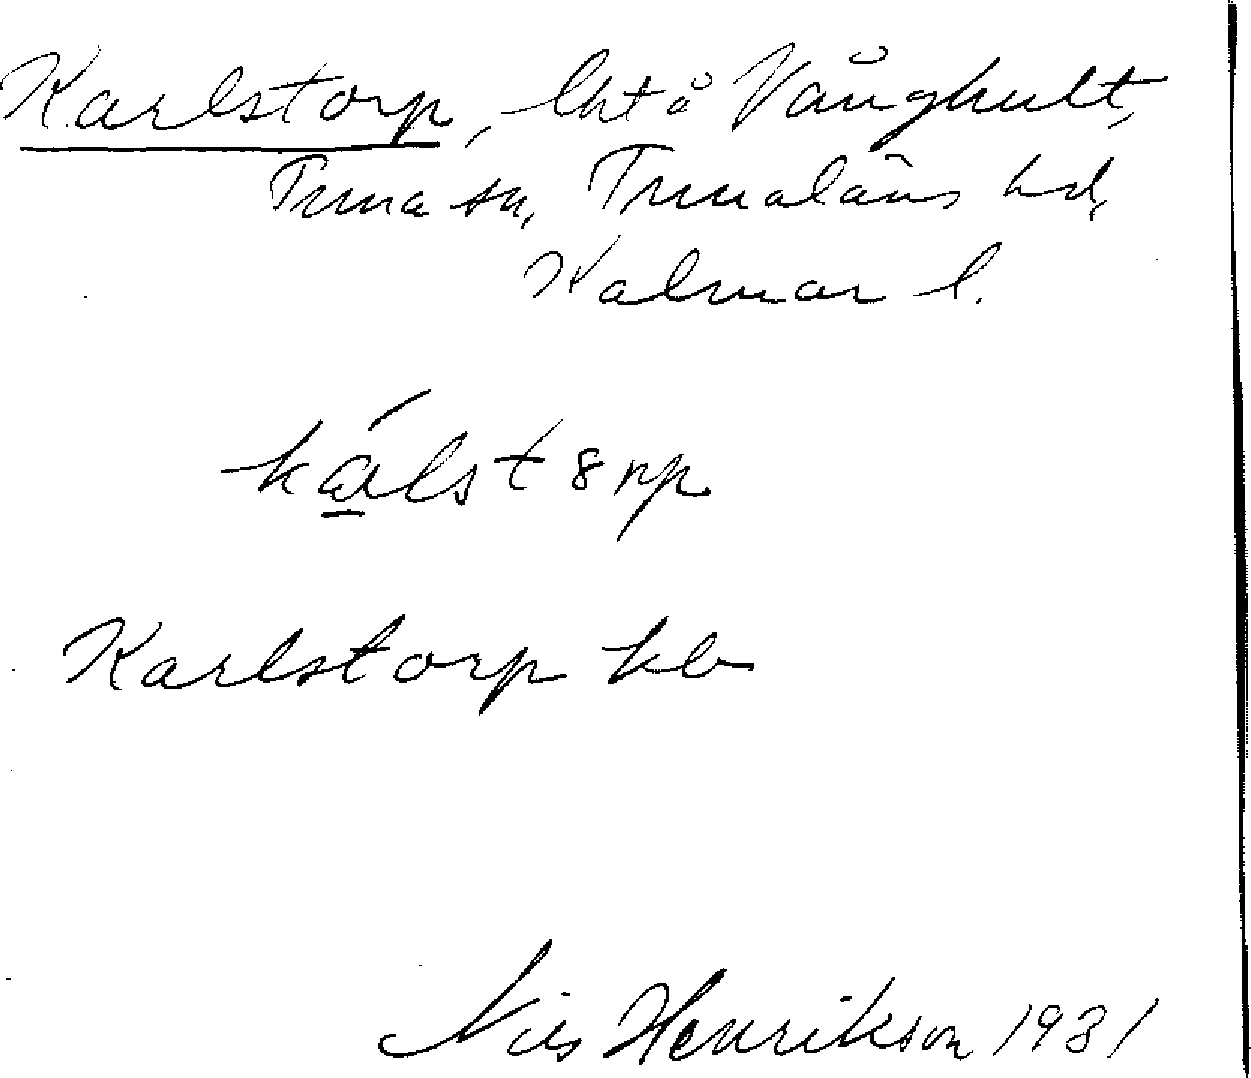 Karlstorp, lht å Vånghult,
Tuna sn, Tunaläns hd,
Kalmar l.
kálstorp
Karlstorp kb
Nils Henrikson 1931